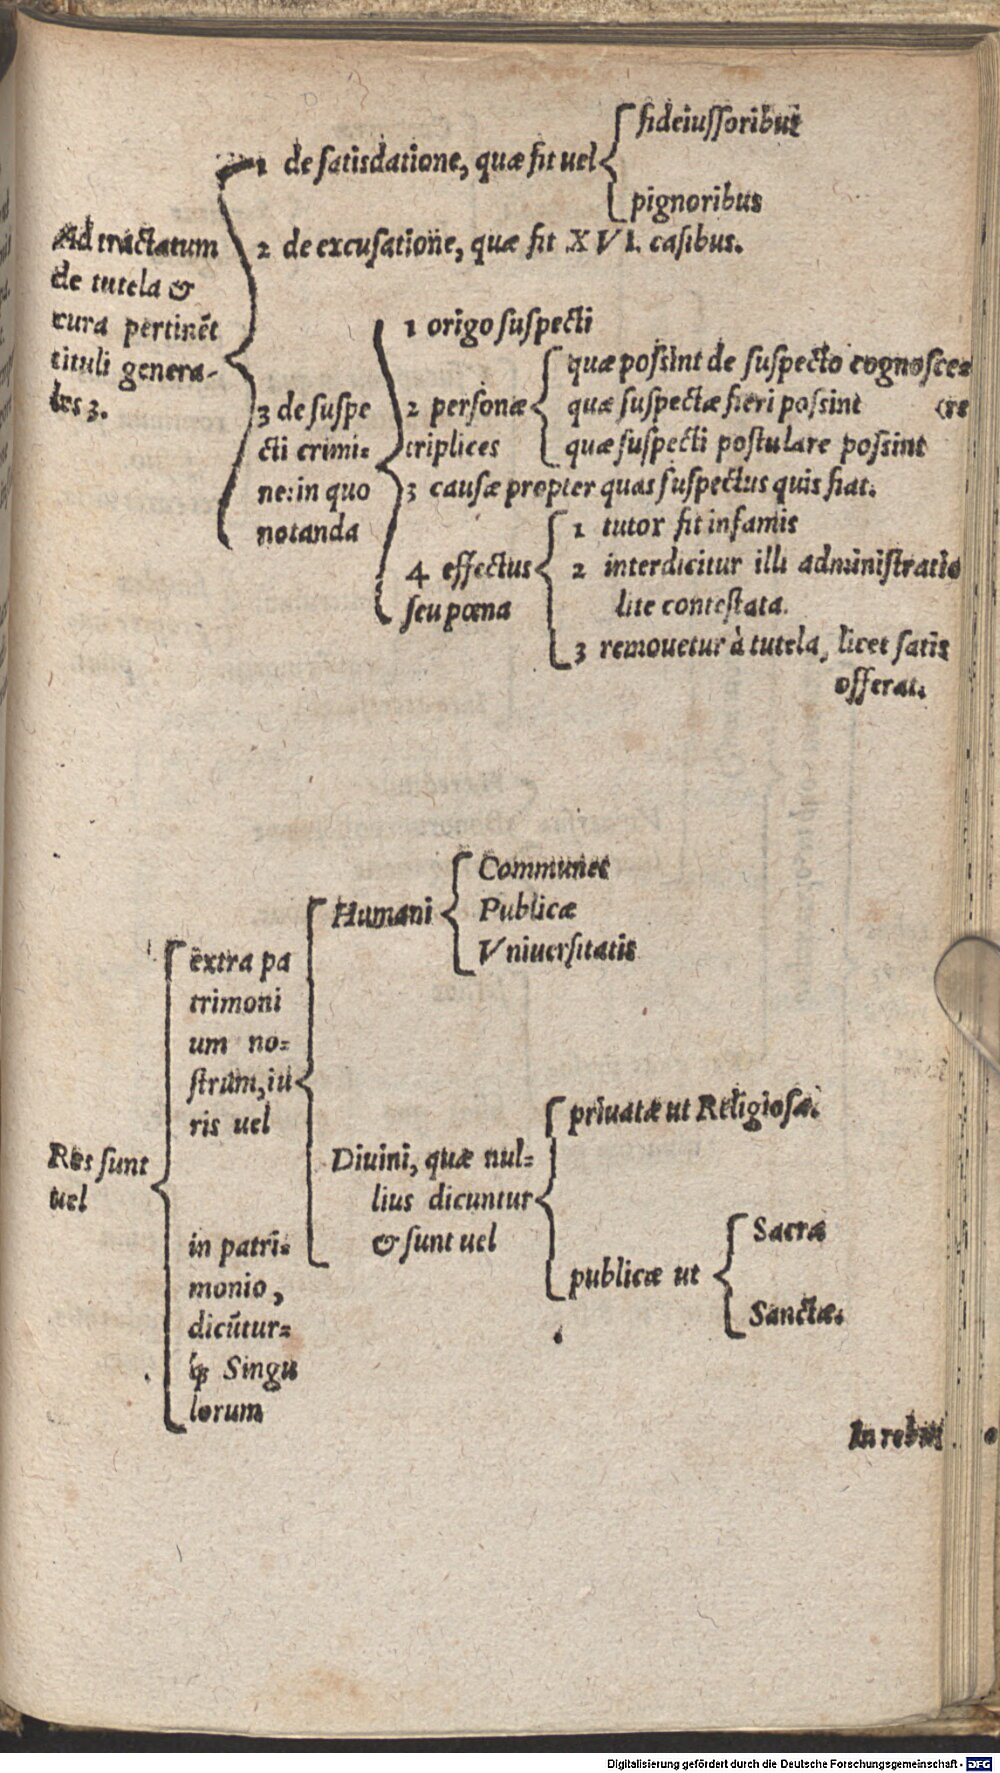 Ad tractatum
de tutela &
cura pertinēt
tituli genera-
les 3.
1 de satisdatione, quæ fit uel
fideiussoribus
pignoribus
2 de excusatione, quæ fit XVI. casibus.
3 de suspe
cti crimi=
ne: in quo
notanda
1 origo suspecti
2 personæ
triplices
quæ possint de suspecto cognosce=
(re
quæ suspectæ fieri possint
quæ suspecti postulare possint
3 causæ propter quas suspectus quis fiat.
4 effectus
seu pœna
1 tutor fit infamis
2 interdicitur illi administratio
lite contestata.
3 remouetur à tutela, licet satis
offerat.
Res sunt
uel
extra pa
trimoni
um no=
strum, iu
ris uel
Humani
Communes
Publicæ
Vniuersitatis
Diuini, quæ nul=
lius dicuntur
& sunt uel
priuatæ ut Religiosæ.
publicæ ut
Sacræ
Sanctæ.
in patri=
monio,
dicūtur=
qȝ Singu
lorum
In rebus
Digitalisierung gefördert durch die Deutsche Forschungsgemeinschaft - DFG